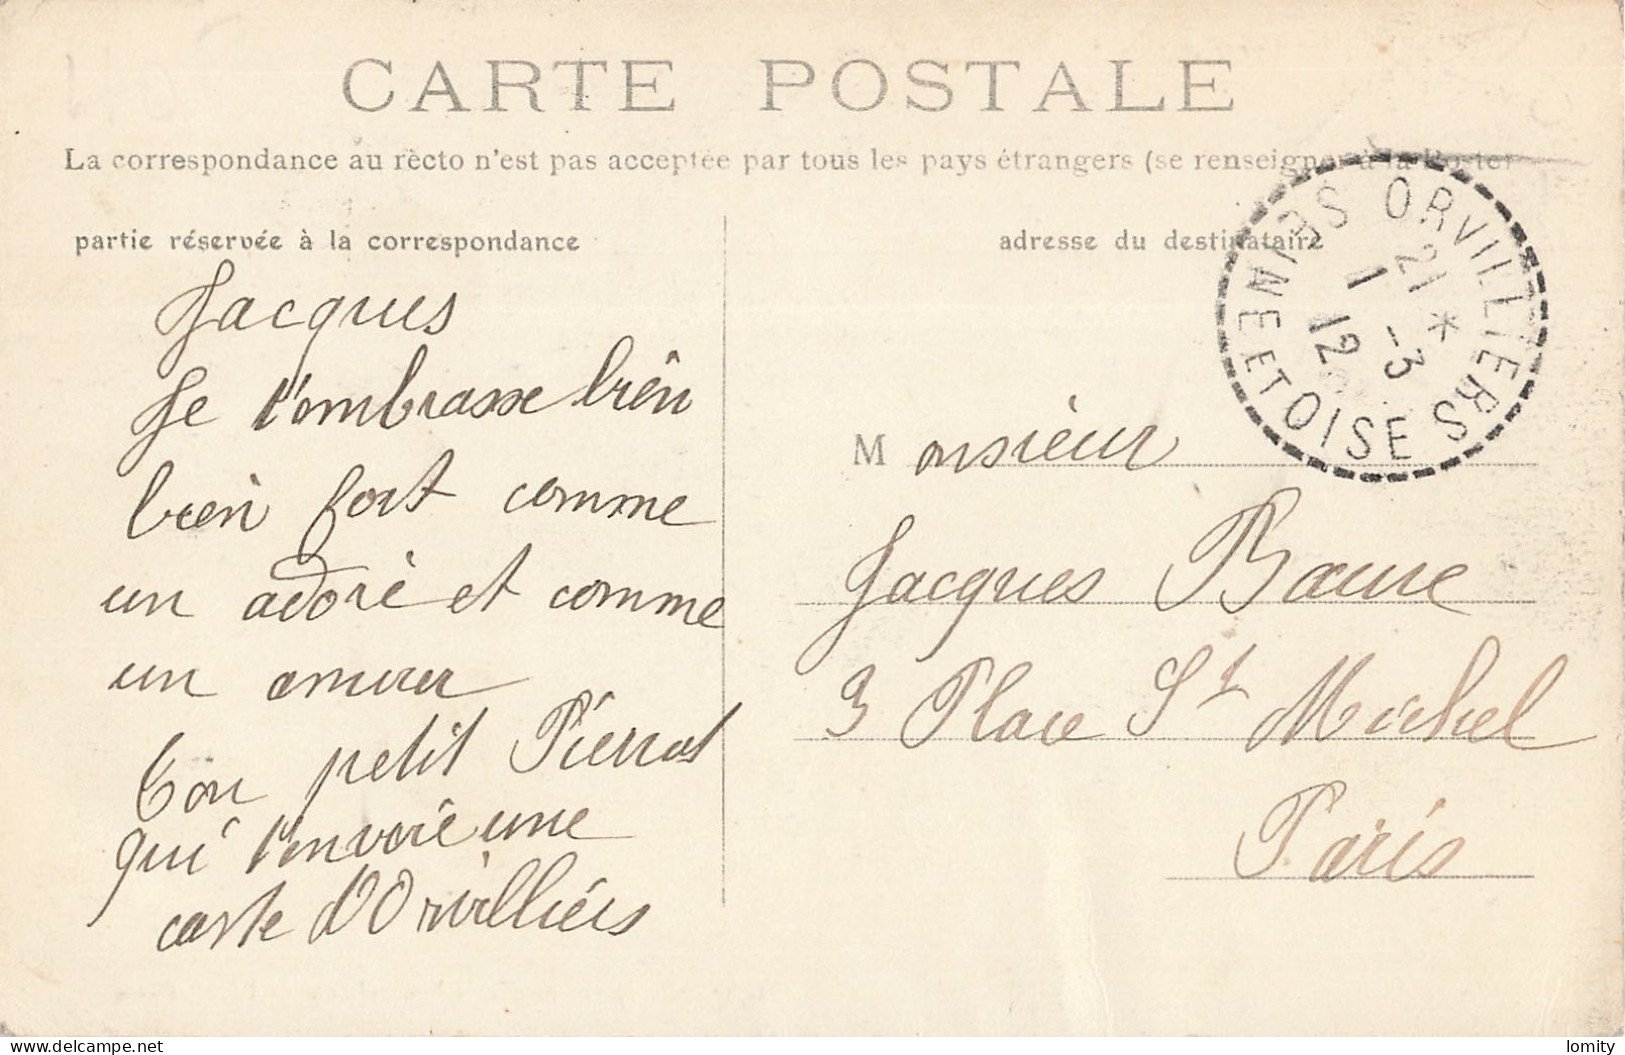 CARTE POSTALE
La correspondance au recto n'est pas acceptée par tous les pays étrangers (se renseigner à la Poste)
partie réservée à la correspondance
adresse du destinataire
ORVILLIERS
SEINE ET OISE
21 *
1 -3
12
Jacques
Je t'embrasse bien
bien fort comme
un adoré et comme
un amour
Ton petit Pierrot
qui t'envoie une
carte d'Orvilliers
Monsieur
Jacques
3 Place St Michel
Paris
lomity
delcampe.net